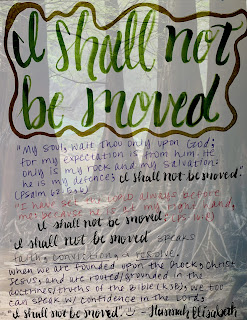 I shall not
be moved
"My soul, wait thou only upon God;
for my expectation is from him. He
only is my rock and my salvation:
he is my defence; I shall not be moved."
(Psalm 62:5,6)
"I have set the Lord always before
me: because he is at my right hand,
I shall not be moved. (Ps. 16:8)
I shall not be moved speaks
faith, conviction, a resolve.
when we are founded upon the Rock, Christ
Jesus, and are rooted/grounded in the
doctrines/truths of the Bible (KJB), we too
can speak w/ confidence in the Lord,
"I shall not be moved". - Hannah Elisabeth